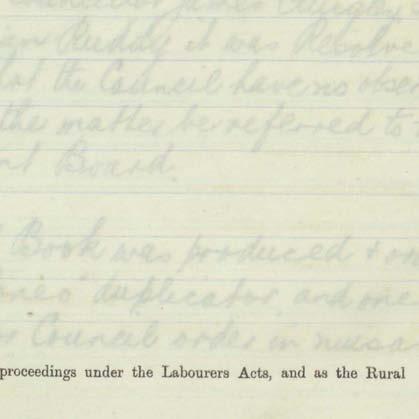 Councillor James
Ruddy it was Resolve
the Council have no obser
the matter be referred to
Board.
Book was produced & on
duplicator and one
Council order in
proceedings under the Labourers Acts, and as the Rural